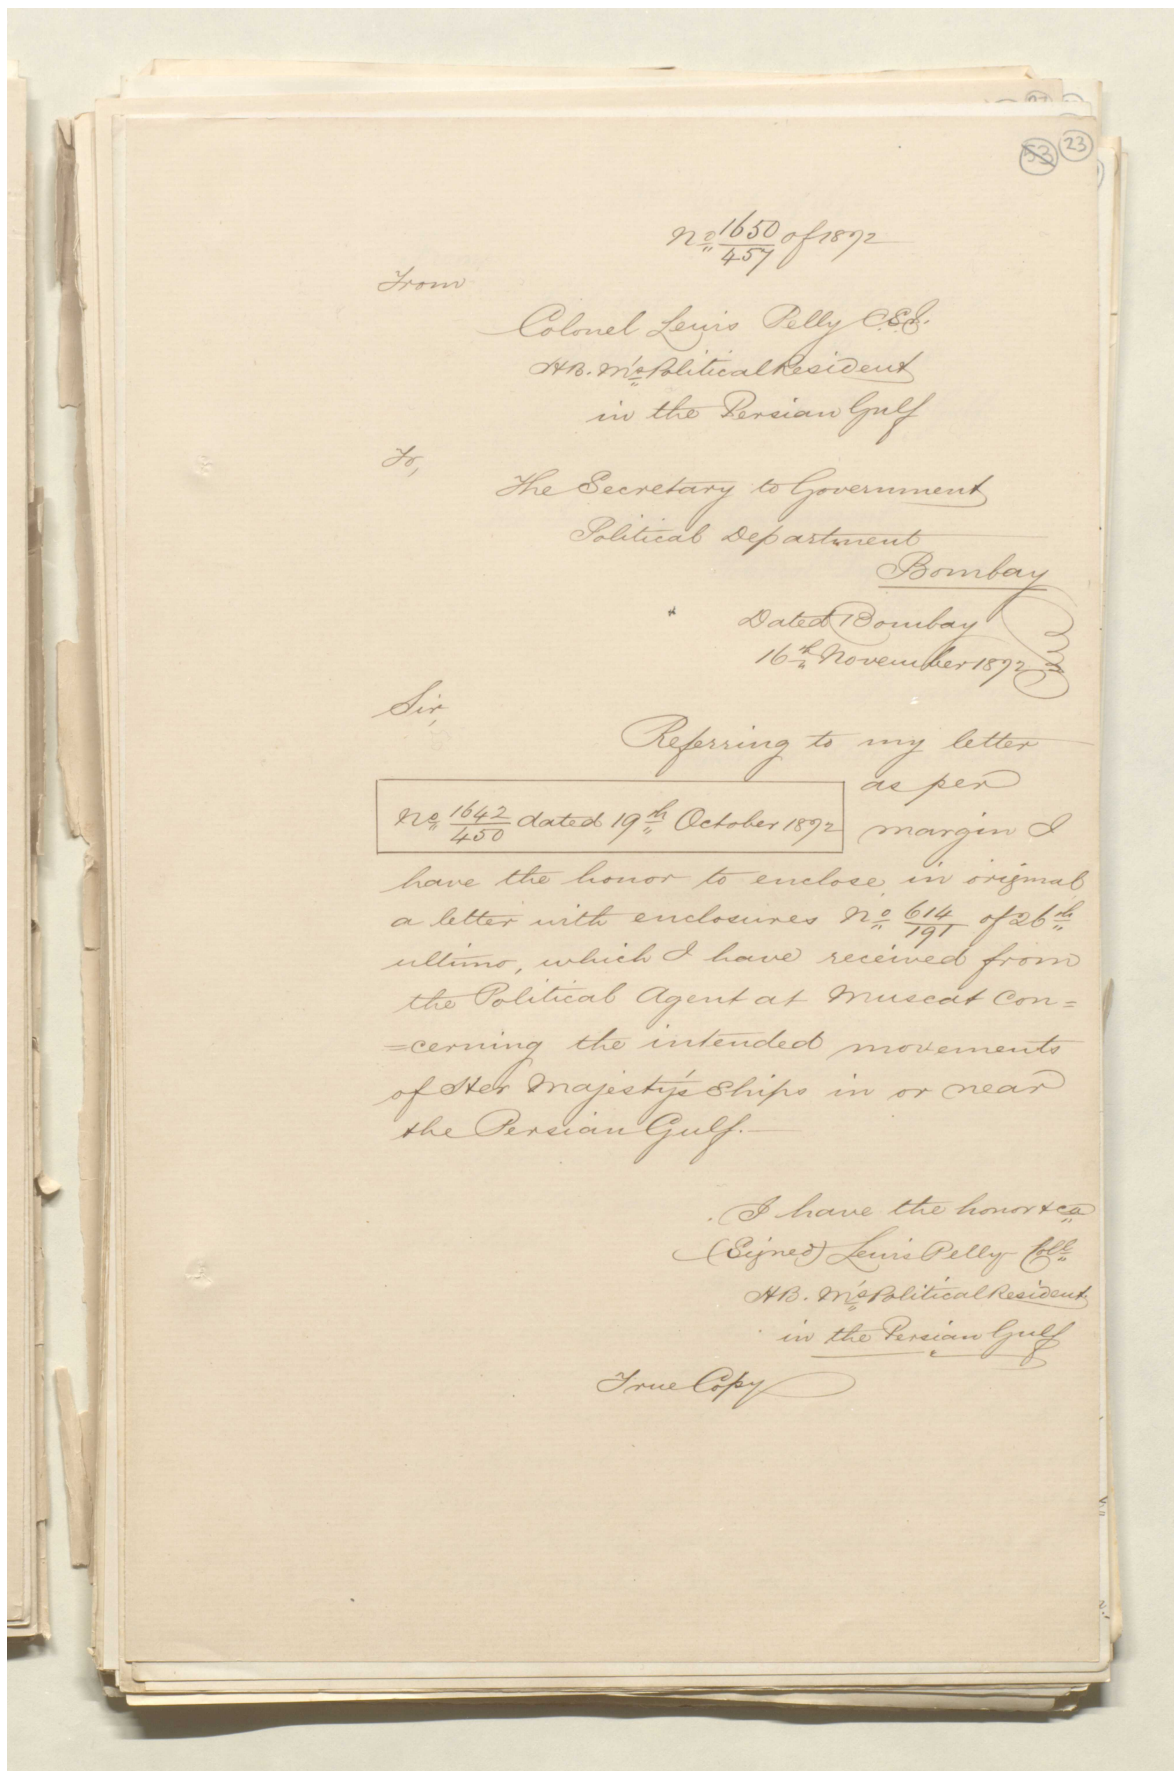 53 23
No 1650/457 of 1872
From
Colonel Lewis Pelly C.S.I.
H.B. M's Political Resident
in the Persian Gulf
To,
The Secretary to Government
Political Department
Bombay
Dated Bombay
16th November 1872
Sir,
Referring to my letter
as per
No 1642/450 dated 19th October 1872 margin I
have the honor to enclose in original
a letter with enclosures No 614/191 of 26th
ultimo, which I have received from
the Political Agent at Muscat con=
=cerning the intended movements
of Her Majesty's Ships in or near
the Persian Gulf.—
I have the honor &ca
(Signed) Lewis Pelly Coll
H.B. M's Political Resident
in the Persian Gulf
True Copy